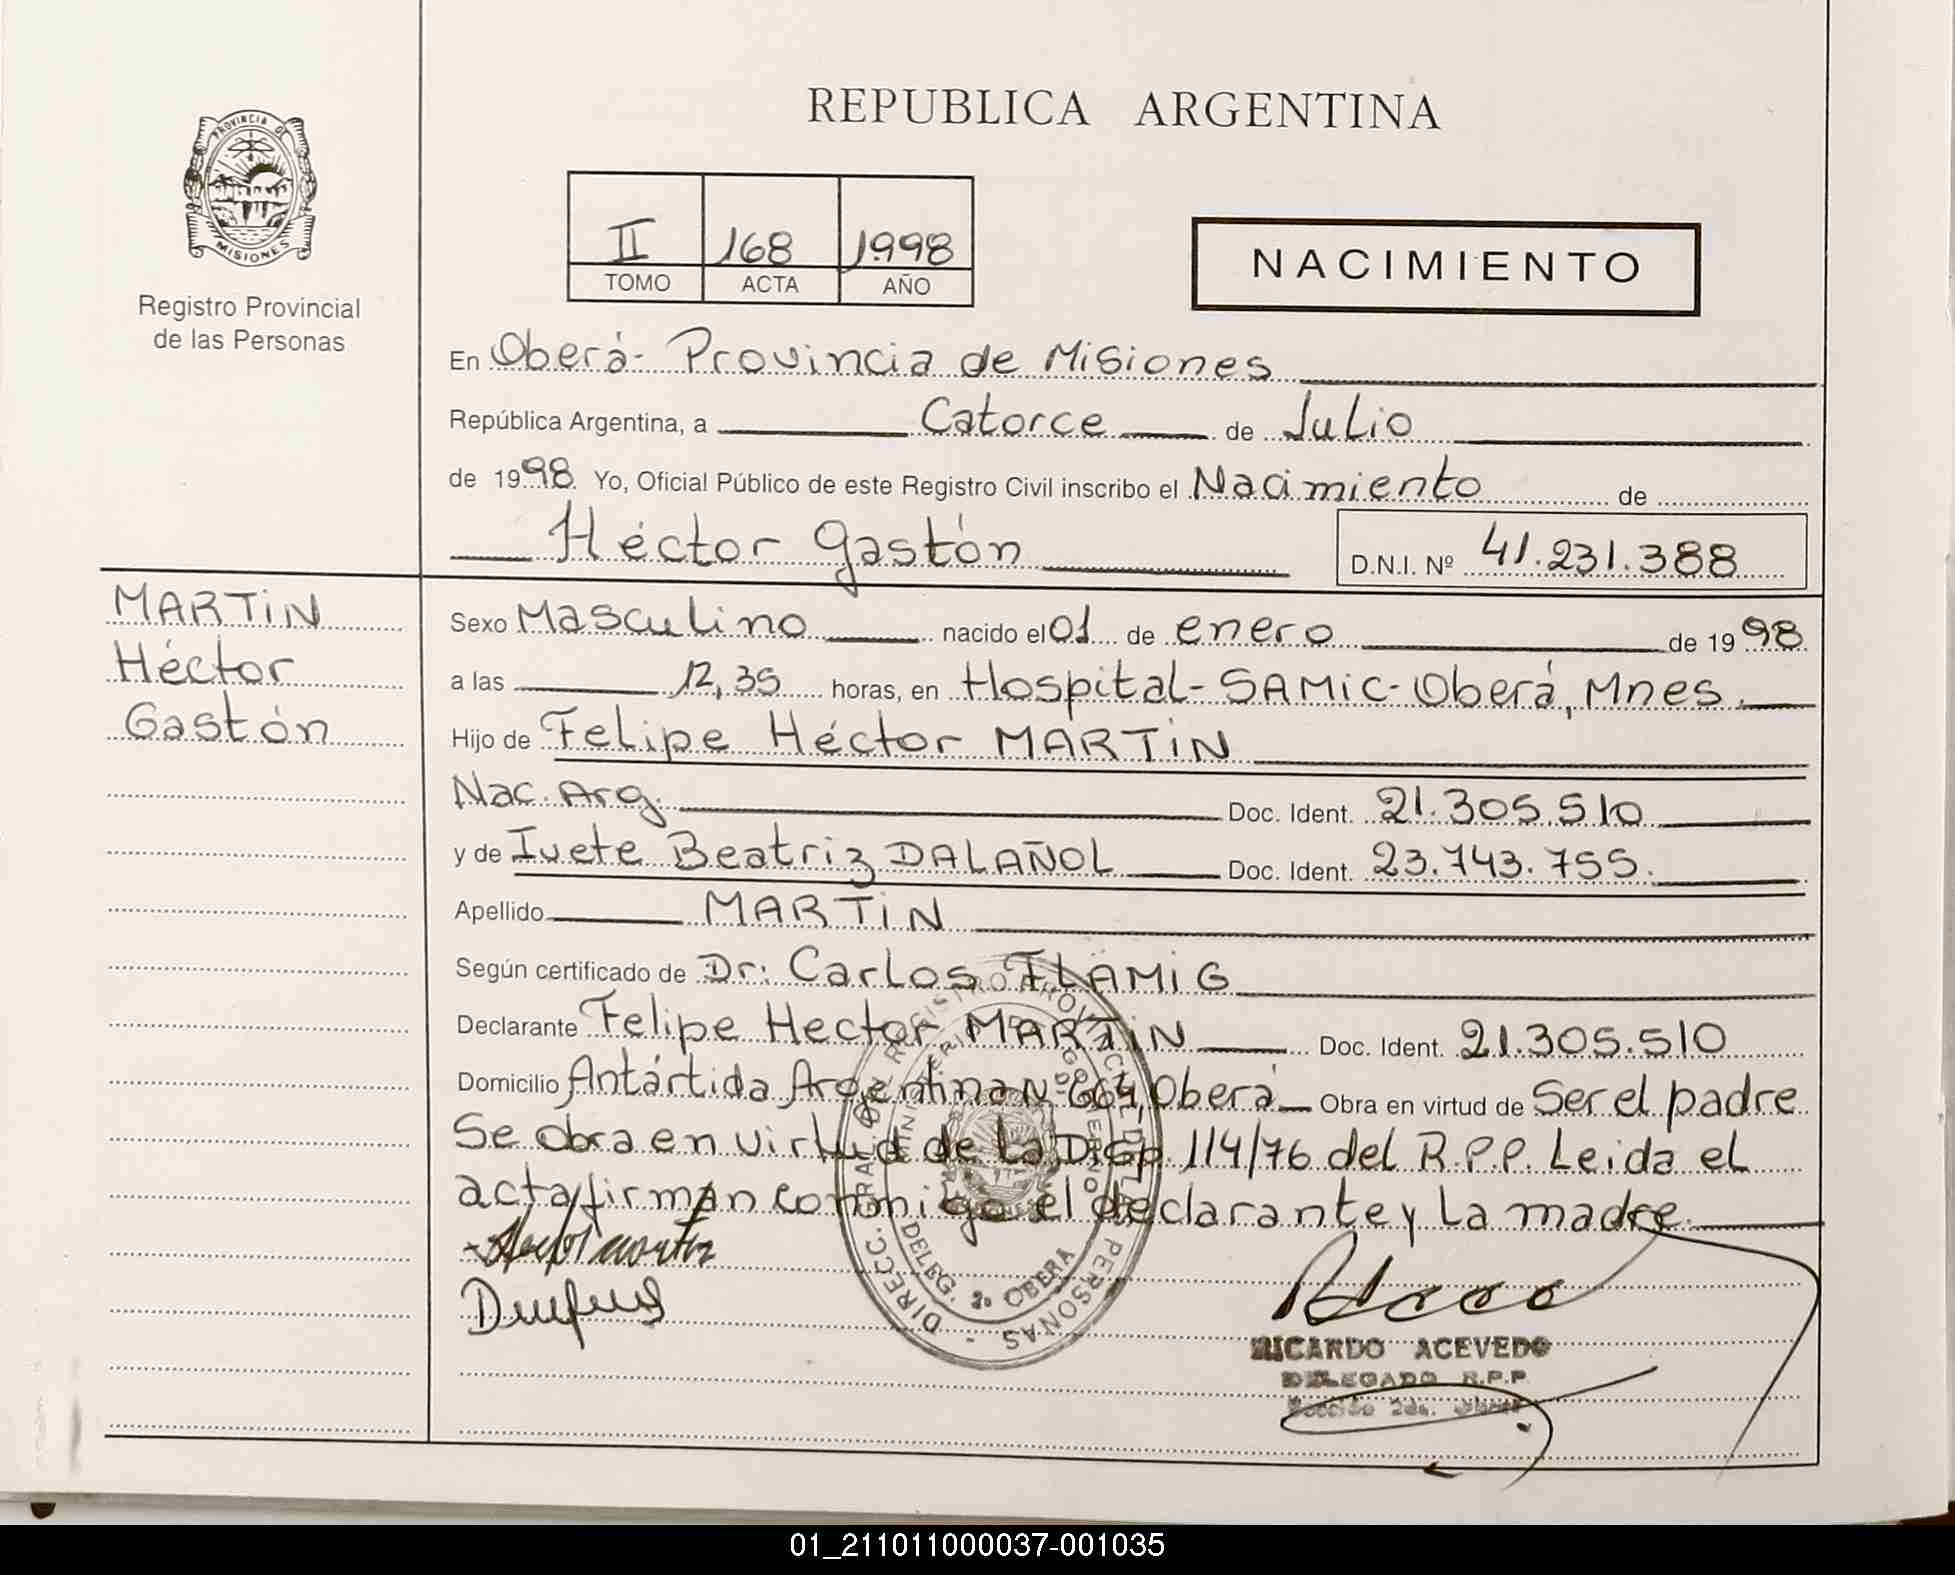 PROVINCIA DE
MISIONES
Registro Provincial
de las Personas
REPUBLICA ARGENTINA
II 168 1998
TOMO ACTA AÑO
NACIMIENTO
En Oberá- Provincia de Misiones
República Argentina, a Catorce de Julio
de 1998 Yo, Oficial Público de este Registro Civil inscribo el Nacimiento de
Héctor Gastón D.N.I. Nº 41.231.388
MARTiN
Héctor
Gastón
Sexo Masculino nacido el 01 de enero de 1998
a las 12,35 horas, en Hospital-SAMiC-Oberá, Mnes.
Hijo de Felipe Héctor MARTiN
Nac. Arg. Doc. Ident. 21.305.510
y de Ivete Beatriz DALAÑOL Doc. Ident. 23.743.755.
Apellido MARTiN
Según certificado de Dr: Carlos FLAMiG
Declarante Felipe Hector MARTiN Doc. Ident. 21.305.510
Domicilio Antártida Argentina Nº 664, Oberá Obra en virtud de Ser el padre
Se obra en virtud de la Disp. 114/76 del R.P.P. Leida el
acta, firman conmigo el declarante y la madre.
DIRECC. GRAL. DEL REGISTRO PROVINCIAL DE LAS PERSONAS -
MINISTERIO DE GOBIERNO
DELEG. 2º OBERA
RICARDO ACEVEDO
DELEGADO R.P.P.
Sección 2da.
01_211011000037-001035